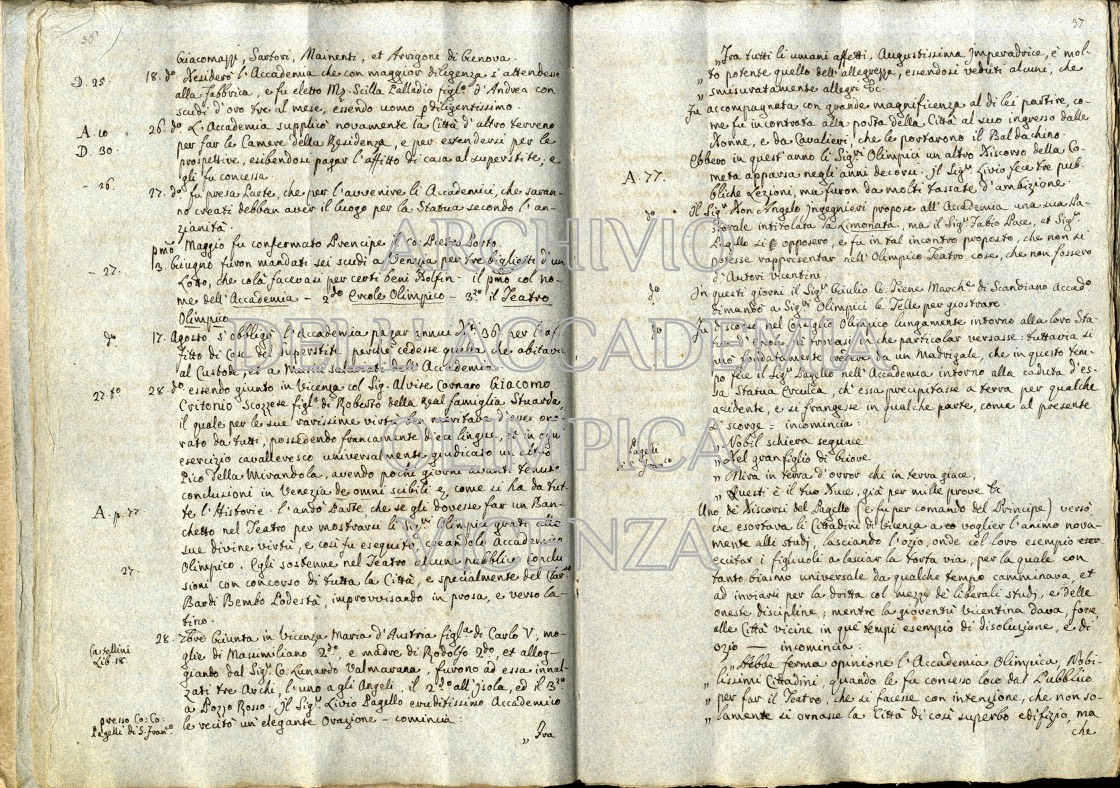 36
Giacomazzi, Sartori, Mainenti, et Arrigoni di Genova.
D. 25. 18. do Desiderò l'Accademia che con maggior diligenza s'attendesse
alla fabbrica, e fu eletto Mr. Scilla Palladio figlo d'Andrea con
scudi d'oro tre al mese, essendo uomo diligentissimo.
A 10 26. do L'Accademia supplicò novamente la Città d'altro terreno
D 30. per far le Camere della Residenza, e per estendersi per le
prospettive, esibendosi pagar l'affitto di casa al superstite, e
gli fu concessa.
- 26. 27. do fu presa Parte, che per l'avvenire li Accademici, che saran-
no creati debban aver il luogo per la Statua secondo l'an-
zianità.
pmo Maggio fu confermato Prencipe il Co: Pietro Porto.
- 27. 13. Giugno furon mandati sei scudi a Venezia per tre biglietti d'un
Lotto, che colà facevasi per certi beni Dolfin - il pmo col no-
me dell'Accademia - 2do Ercole Olimpico - 3zo il Teatro
Olimpico
do 17. Agosto s'obbligò l'Accademia pagar annui Dti 36 per l'af-
fitto di Casa del superstite, perché cedesse quella che abitava
al Custode, et a Maria salariati dell'Accademia.
27. to 28. do essendo giunto in Vicenza col Sig. Alvise Cornaro Giacomo
Critonio Scozzese figlo di Roberto della Real famiglia Stuarda,
il quale per le sue rarissime virtù ben meritava d'esser ono-
rato da tutti, possedendo francamente dieci lingue, et in ogni
esercizio cavalleresco universalmente giudicato un altro
Pico della Mirandola, avendo pochi giorni avanti tenuto
conclusioni in Venezia de omni scibili e, come si ha da tut-
te l'Historie. l'andò Parte che se gli dovesse far un Ban-
A. p. 77 chetto nel Teatro per mostrarsi li Sigri Olimpici grati alle
sue divine virtù, e così fu eseguito, creandolo Accademico
Olimpico. Egli sostenne nel Teatro alcune pubblice conclu-
27. sioni con concorso di tutta la Città, e specialmente del
Bardi Bembo Podestà, improvvisando in prosa, e verso la-
tino.
28. Giunta in Vicenza Maria d'Austria figla di Carlo V, mo-
Castellini glie di Masimiliano 2do, e madre di Rodolfo 2do, et allog-
Lib. 18. giando dal Sigr Co. Lunardo Valmarana, furono ad essa innal-
zati tre Archi, l'uno a gli Angeli, il 2do all'Isola, ed il 3zo
a Pozzo Rosso. Il Sigr Livio Pagello eruditissimo Accademico
presso Co: Co: le recitò un'elegante Orazione - comincia:
Pagelli di S. Franco
„ Fra
37
„ Fra tutti li umani affetti, Augustissima Imperadrice, è mol-
„ to potente quello dell'allegrezza, essendosi veduti alcuni, che
„ smisuratamente allegri &c.
Fu accompagnata con grande magnificenza al di lei partire, co-
me fu incontrata alla porta della Città al suo ingresso dalle
Donne, e da Cavalieri, che le portarono il Baldachino.
Ebbero in quest'anno li Sigri Olimpici un altro Discorso della Co-
A 77. meta apparsa negli anni decorsi. Il Sigr Livio fece tre pub-
bliche Lezioni, ma furon da molti tassate d'ambizione.
do Il Sigr Don Angelo Ingegnieri propose all'Accademia una sua Pa-
storale intitolata la Limonata, ma il Sigr Fabio Pace, et Sigr
Pagello si opposero, e fu in tal incontro proposto, che non si
potesse rappresentar nell'Olimpico Teatro cose, che non fossero
d'Autori Vicentini.
do In questi giorni il Sigr Giulio Co. Tiene Marchse di Scandiano Accado
dimandò a Sigri Olimpici le Telle per giostrare.
do Fu discorso nel Consiglio Olimpico lungamente intorno alla loro Sta-
tua d'Ercole, né trovasi in che particolar versasse: tuttavia si
può fondatamente credere da un Madrigale, che in questo tem-
po fece il Sigr Pagello nell'Accademia intorno alla caduta d'es-
sa Statua Erculea, ch'essa precipitasse a terra per qualche
acidente, e si frangesse in qualche parte, come al presente
si scorge = incomincia:
Pagelli „ Nobil schiera seguace
di S. Franco „ Del gran figlio di Giove
„ Mira in terra d'orror chi in terra giace,
„ Questi è il tuo Duce, già per mille prove &c
Uno de Discorsi del Pagello (e fu per comando del Principe) versò
che esortava li Cittadini di Vicenza a voglier l'animo nova-
mente alli studj, lasciando l'ozio, onde col lovo esempio eser-
ecuitar i figliuoli a lasciar la torta via, per la quale con
tanto biasmo universale da qualche tempo camminava, et
ad inviarsi per la dritta col mezzo de liberali studj, e delle
oneste discipline; mentre la gioventù Vicentina dava, forse
alle Città vicine in que' tempi esempio di disoluzione, e di
ozio — incomincia:
„ Hebbe ferma opinione l'Accademia Olimpica, Nobi-
„ lissimi Cittadini, quando le fu concesso loco dal Publico
„ per far il Teatro, che si facesse con intenzione, che non so-
„ lamente si ornasse la Città di così superbo edifizio, ma
che
ARCHIVIO
DELL'ACCADEMIA
OLIMPICA
VICENZA